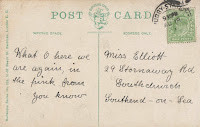 POST CARD
What O here we
are again, in
the pink, from
You know
Miss Elliott
29 Stornaway Rd
Southchurch
Southend-on-Sea